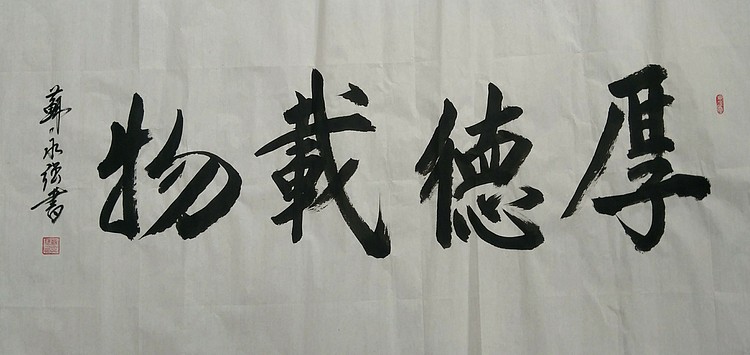 厚德載物
蘇永強書